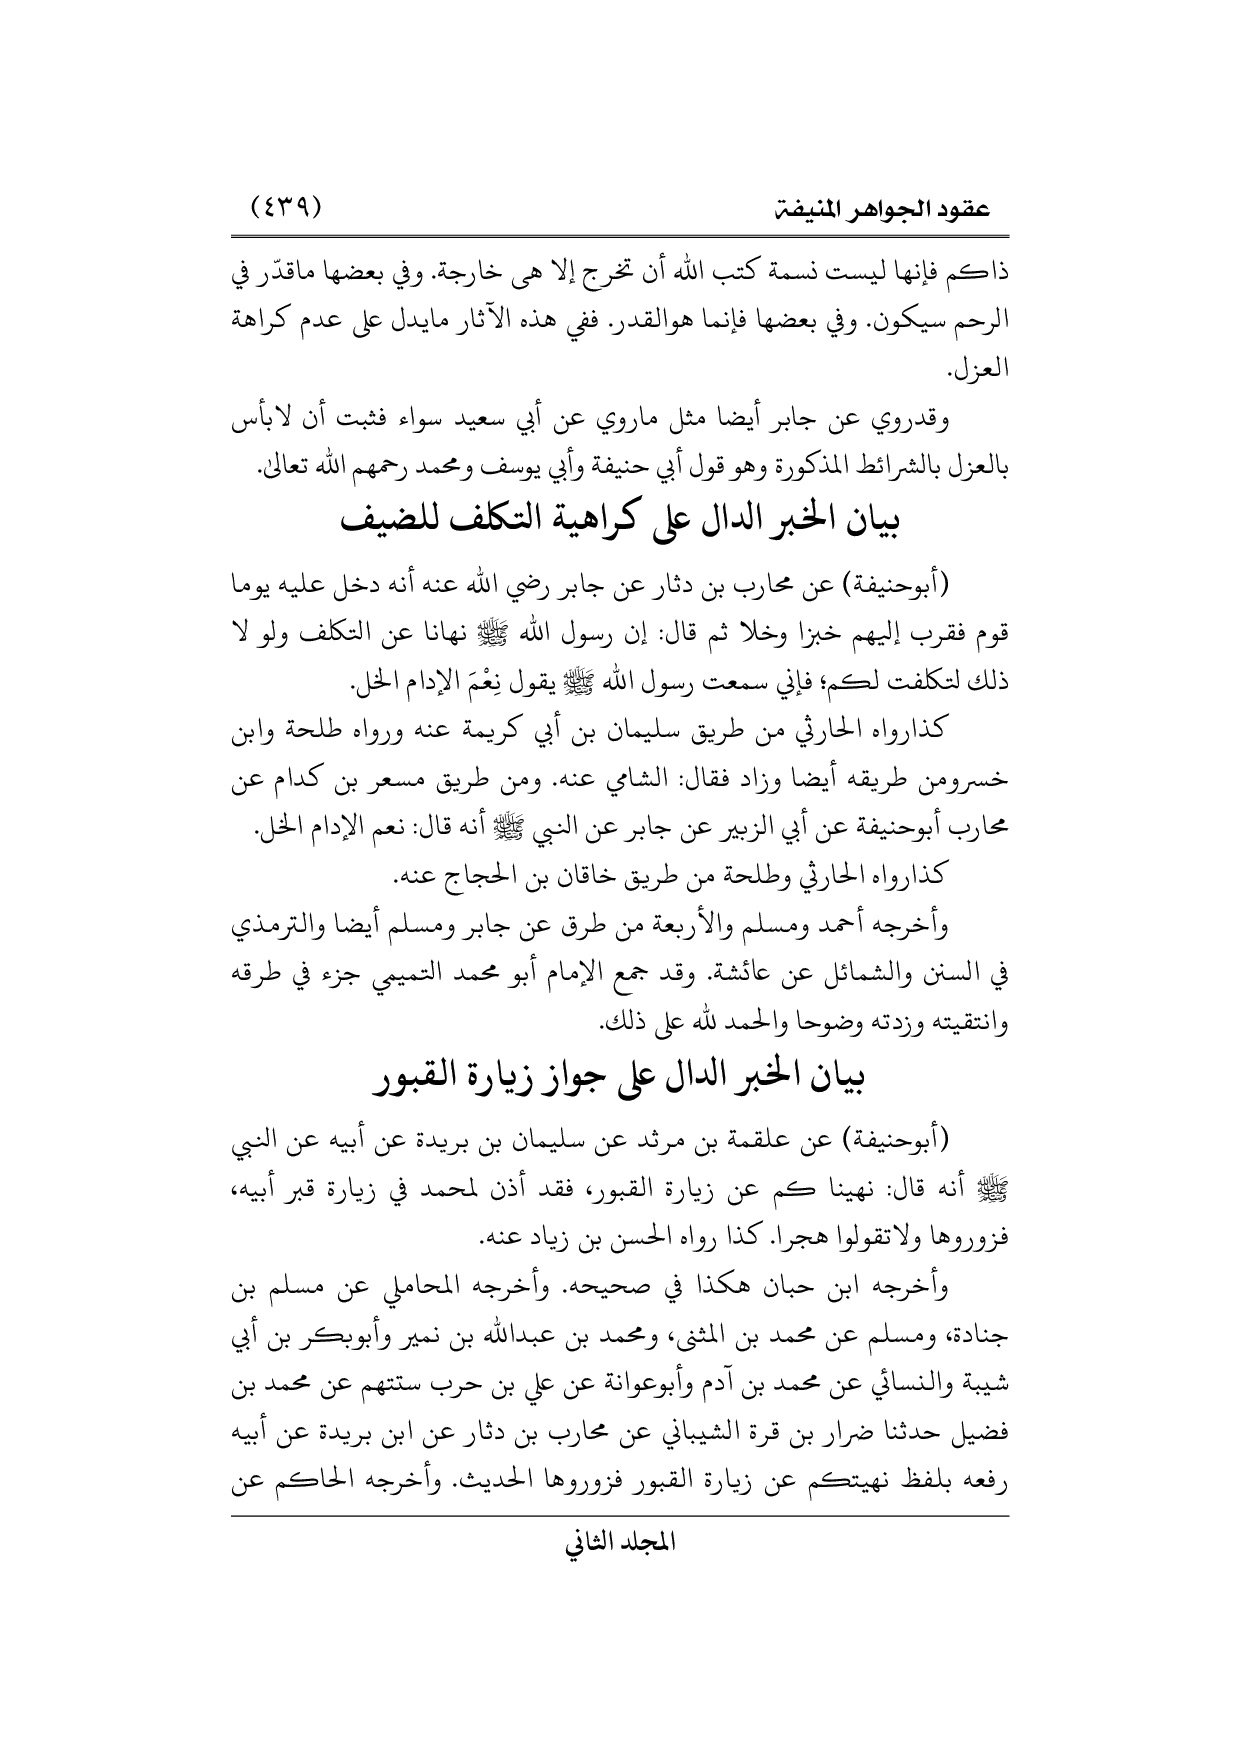 عقود الجواهر المنيفة (٤٣٩)
ذاكم فإنها ليست نسمة كتب الله أن تخرج إلا هى خارجة. وفي بعضها ماقدّر في
الرحم سيكون. وفي بعضها فإنما هوالقدر. ففي هذه الآثار مايدل على عدم كراهة
العزل.
وقدروي عن جابر أيضا مثل ماروي عن أبي سعيد سواء فثبت أن لابأس
بالعزل بالشرائط المذكورة وهو قول أبي حنيفة وأبي يوسف ومحمد رحمهم الله تعالىٰ.
بيان الخبر الدال على كراهية التكلف للضيف
(أبوحنيفة) عن محارب بن دثار عن جابر رضي الله عنه أنه دخل عليه يوما
قوم فقرب إليهم خبزا وخلا ثم قال: إن رسول الله ﷺ نهانا عن التكلف ولو لا
ذلك لتكلفت لكم؛ فإني سمعت رسول الله ﷺ يقول نِعْمَ الإدام الخل.
كذارواه الحارثي من طريق سليمان بن أبي كريمة عنه ورواه طلحة وابن
خسرومن طريقه أيضا وزاد فقال: الشامي عنه. ومن طريق مسعر بن كدام عن
محارب أبوحنيفة عن أبي الزبير عن جابر عن النبي ﷺ أنه قال: نعم الإدام الخل.
كذارواه الحارثي وطلحة من طريق خاقان بن الحجاج عنه.
وأخرجه أحمد ومسلم والأربعة من طرق عن جابر ومسلم أيضا والترمذي
في السنن والشمائل عن عائشة. وقد جمع الإمام أبو محمد التميمي جزء في طرقه
وانتقيته وزدته وضوحا والحمد لله على ذلك.
بيان الخبر الدال على جواز زيارة القبور
(أبوحنيفة) عن علقمة بن مرثد عن سليمان بن بريدة عن أبيه عن النبي
ﷺ أنه قال: نهينا كم عن زيارة القبور، فقد أذن لمحمد في زيارة قبر أبيه،
فزوروها ولاتقولوا هجرا. كذا رواه الحسن بن زياد عنه.
وأخرجه ابن حبان هكذا في صحيحه. وأخرجه المحاملي عن مسلم بن
جنادة، ومسلم عن محمد بن المثنى، ومحمد بن عبدالله بن نمير وأبوبكر بن أبي
شيبة والنسائي عن محمد بن آدم وأبوعوانة عن علي بن حرب ستتهم عن محمد بن
فضيل حدثنا ضرار بن قرة الشيباني عن محارب بن دثار عن ابن بريدة عن أبيه
رفعه بلفظ نهيتكم عن زيارة القبور فزوروها الحديث. وأخرجه الحاكم عن
المجلد الثاني